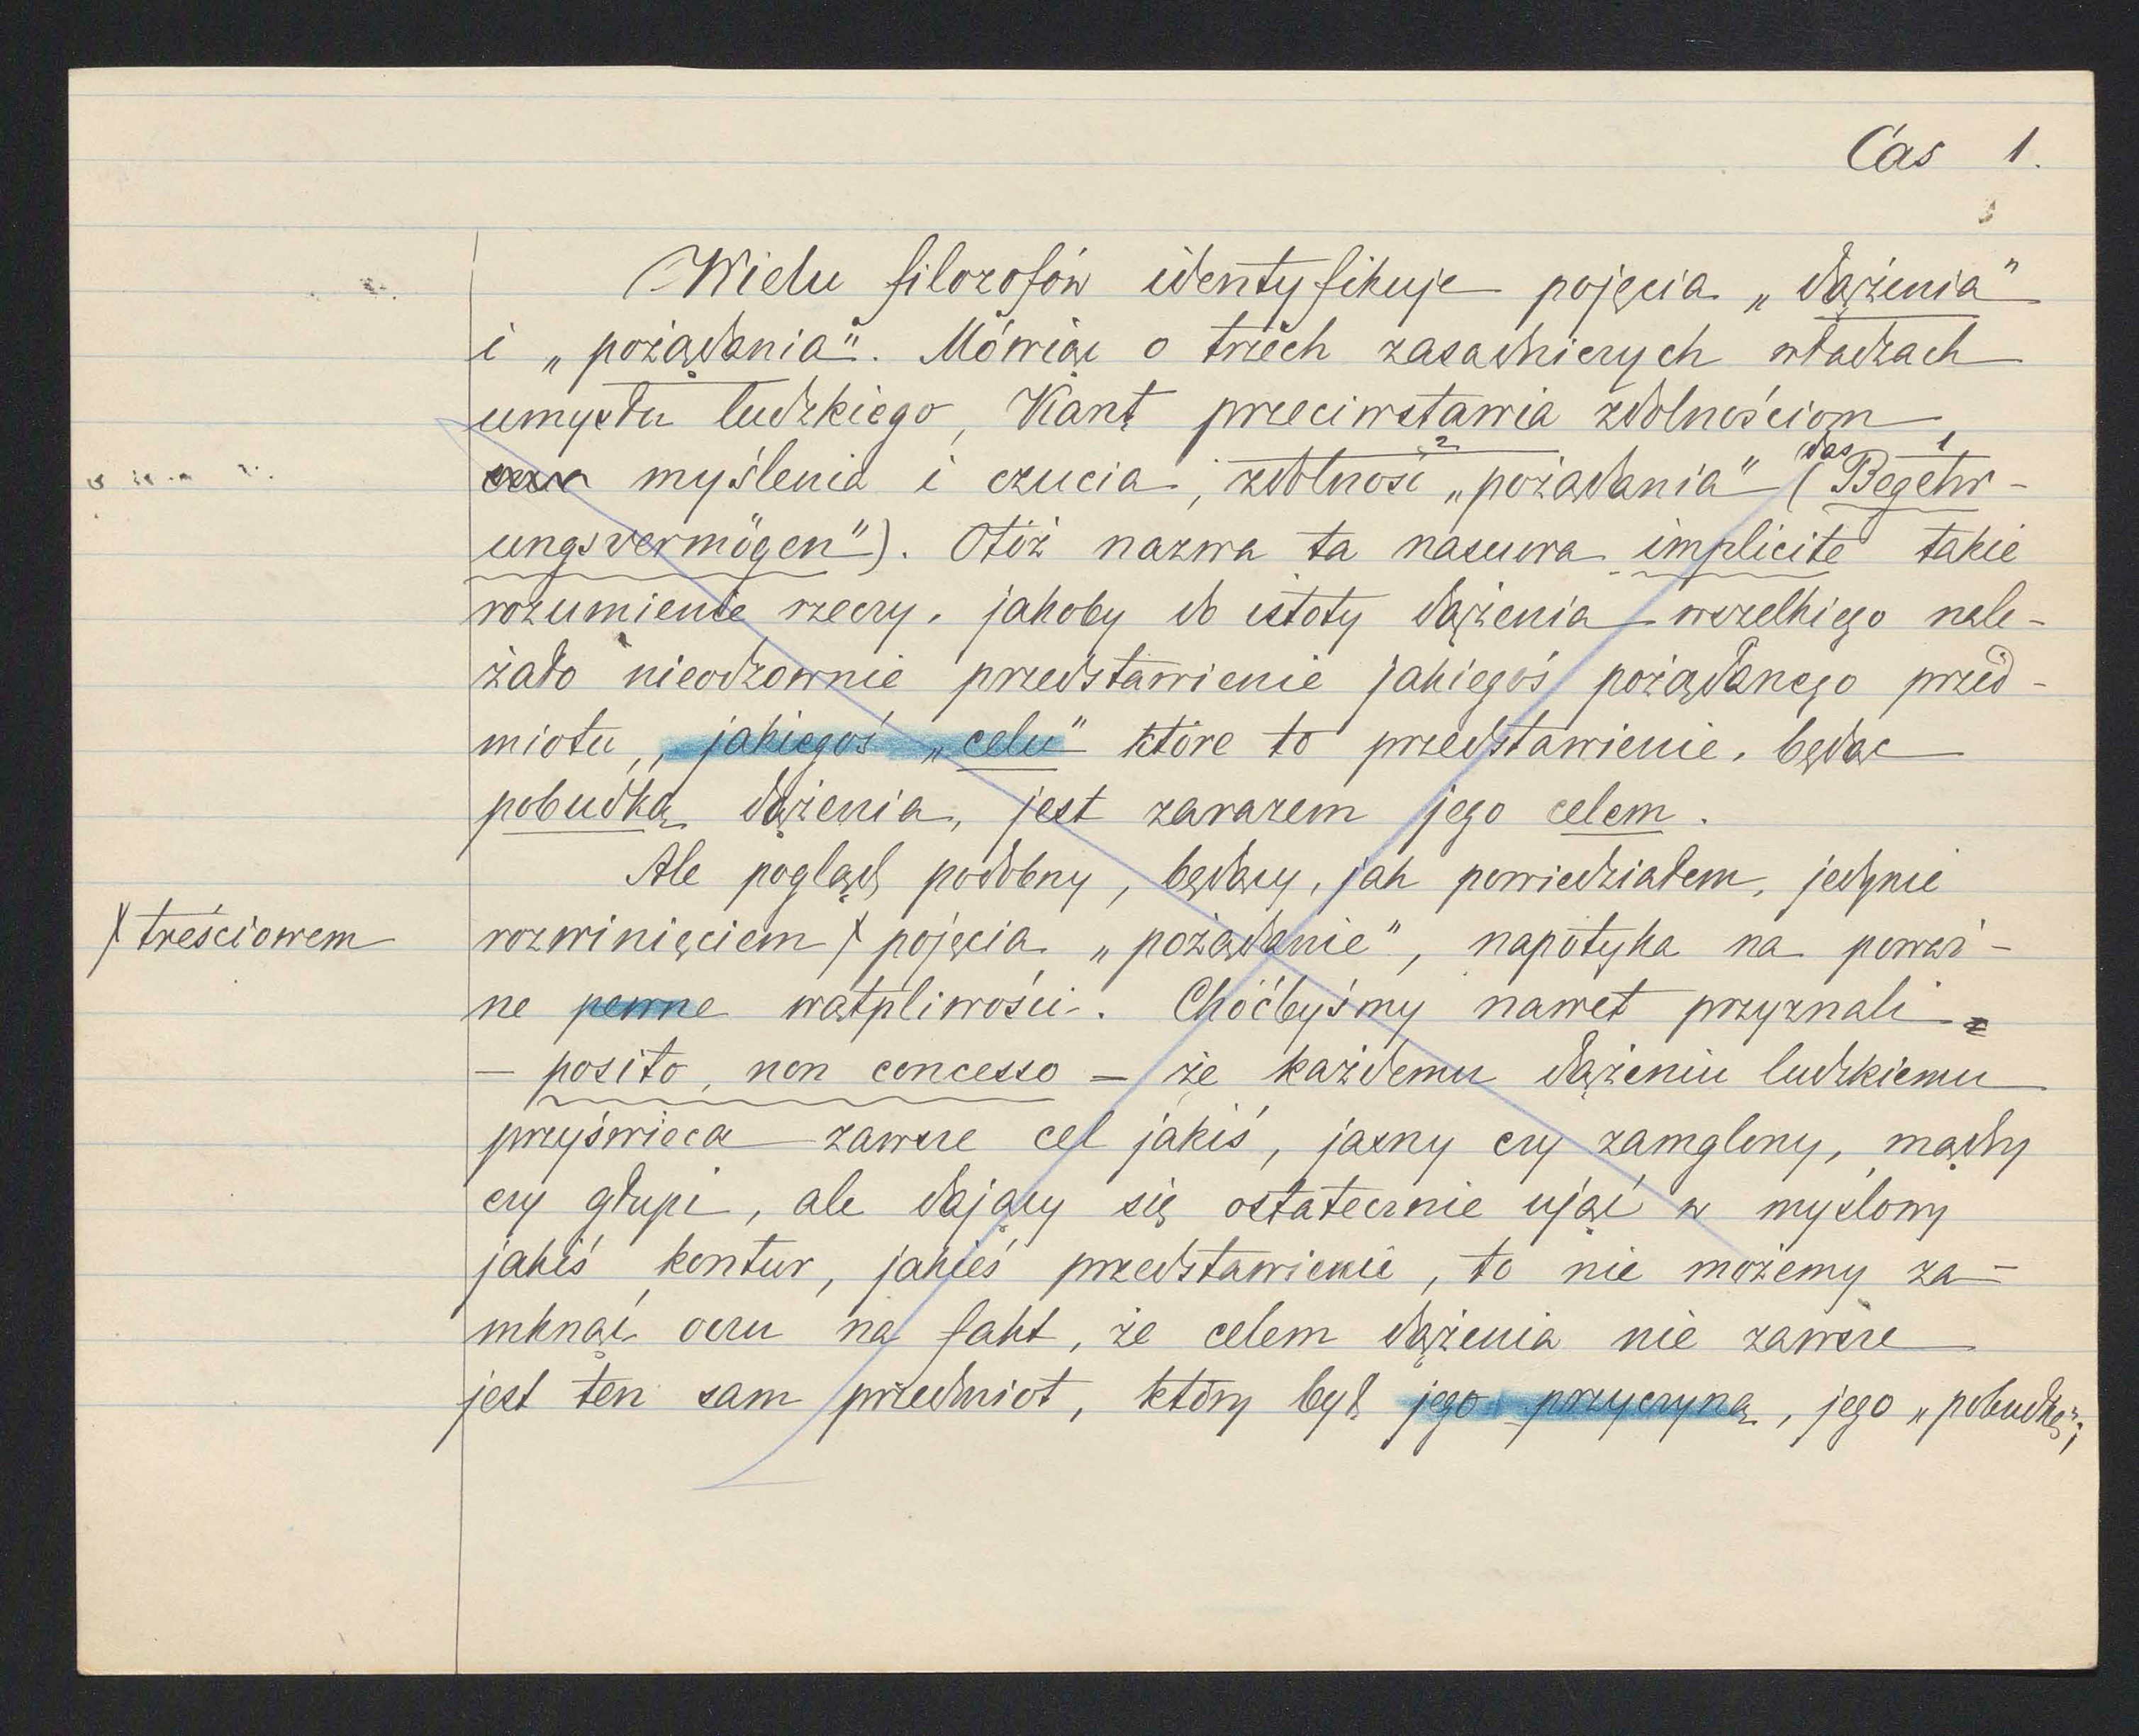 Cas 1.
Wielu filozofów identyfikuje pojęcia „dążenia”
i „pożądania”. Mówiąc o trzech zasadniczych władzach
umysłu ludzkiego, Kant przeciwstawia zdolnościom
myślenia i czucia, zdolność „pożądania” (das Begehr-
ungsvermögen”). Otóż nazwa ta nasuwa implicite takie
rozumienie rzeczy, jakoby do istoty dążenia wszelkiego nale-
żało nieodzownie przedstawienie jakiegoś pożądanego przed-
miotu, jakiegoś „celu” które to przedstawienie, będąc
pobudką dążenia, jest zarazem jego celem.
Ale pogląd podobny, będący, jak powiedziałem, jedynie
treściowem
rozwinięciem pojęcia „pożądanie”, napotyka na poważ-
ne pewne wątpliwości. Choćbyśmy nawet przyznali
– posito, non concesso – że każdemu dążeniu ludzkiemu
przyświeca zawsze cel jakiś, jasny czy zamglony, mądry
czy głupi, ale dający się ostatecznie ująć w myślowy
jakiś kontur, jakieś przedstawienie, to nie możemy za-
mknąć oczu na fakt, że celem dążenia nie zawsze
jest ten sam przedmiot, który był jego przyczyną, jego „pobudką”;